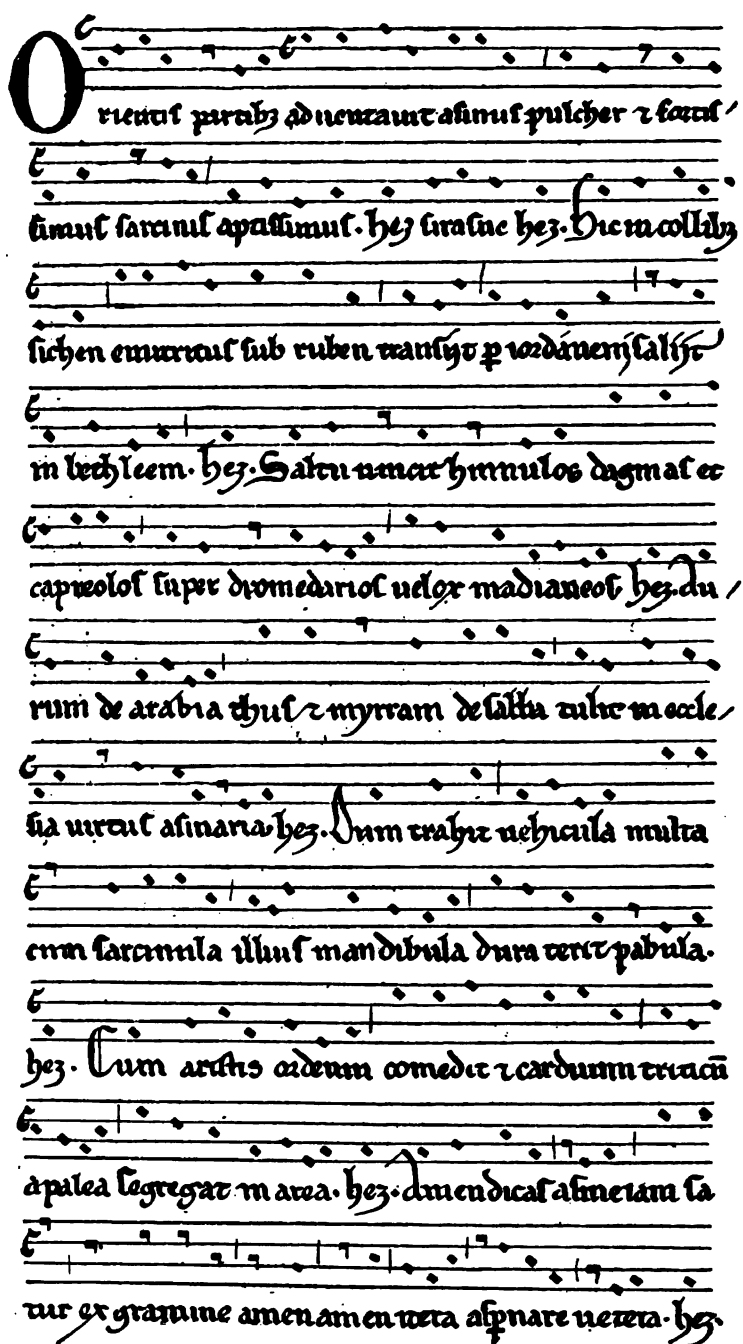 Orientis partibꝫ aduentauit asinus pulcher ⁊ fortis
simus sarcinis aptissimus. heꝫ sir asne heꝫ. Hic in collibꝫ
sichen enutritus sub ruben transijt ꝑ iordanem salijt
in bethleem. heꝫ. Saltu uincit hinnulos dagmas et
capreolos super dromedarios uelox madianeos heꝫ. Au
rum de arabia thus ⁊ myrram de saba tulit in eccle
sia uirtus asinaria heꝫ. Dum trahit uehicula multa
cum sarcinula illius mandibula dura terit pabula.
heꝫ. Cum aristis ordeum comedit ⁊ carduum triticū
a palea segregat in area. heꝫ. Amen dicas asine iam sa
tur ex gramine amen amen itera aspnare uetera. heꝫ.